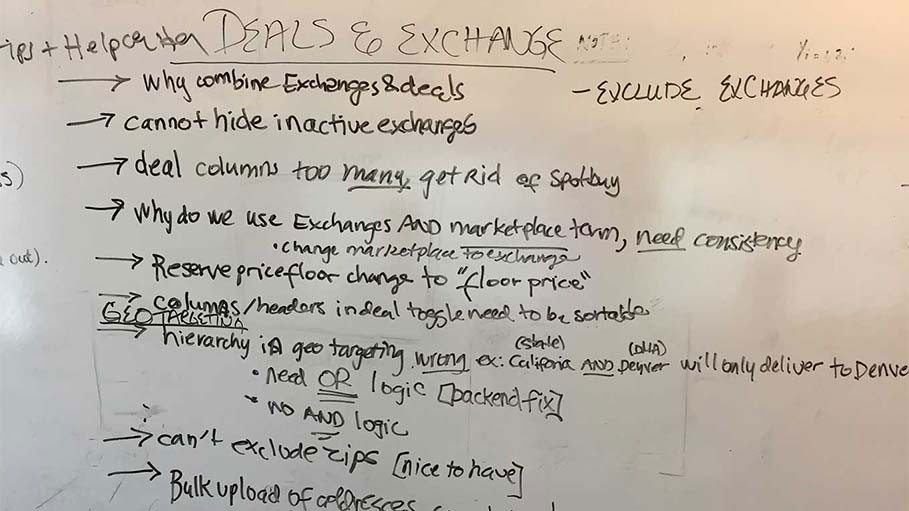 DEALS & EXCHANGE
→ Why combine Exchanges & deals
- EXCLUDE EXCHANGES
→ cannot hide inactive exchanges
→ deal columns too many, get Rid of Spotbuy
→ Why do we use Exchanges AND marketplace term, need consistency
• change marketplace to exchange
out).
→ Reserve price floor change to "floor price"
→ columns/headers in deal toggle need to be sortable
GEO TARGETING
(state) (DMA)
→ hierarchy in geo targeting wrong ex: California AND Denver will only deliver to Denve
• Need OR logic [backend fix]
• NO AND logic
→ can't exclude zips [nice to have]
→ Bulk upload of addresses